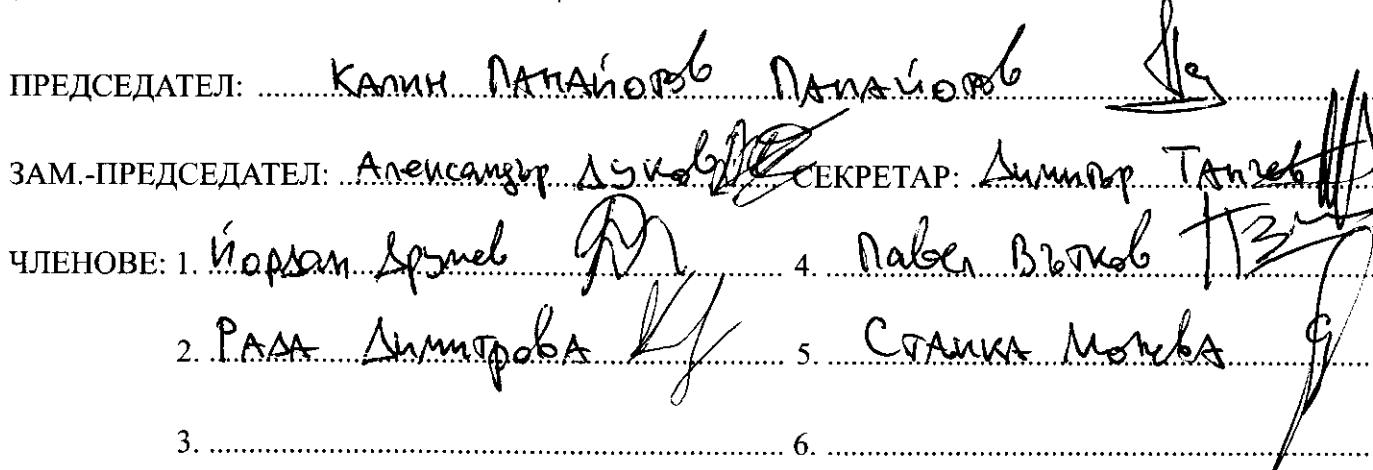 ПРЕДСЕДАТЕЛ: Калин Панайотов Панайотов
ЗАМ.-ПРЕДСЕДАТЕЛ: Александър Дуков СЕКРЕТАР: Димитър Танчев
ЧЛЕНОВЕ: 1. Йордан Друмев 4. Павел Вътков
2. Рада Димитрова 5. Станка
3. 6.